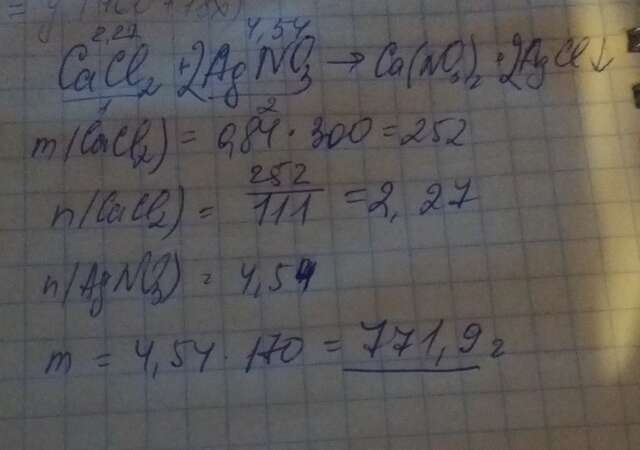 2,27 4,54
CaCl₂ + 2AgNO₃ → Ca(NO₃)₂ + 2AgCl↓
1 2
m(CaCl₂) = 0,84 · 300 = 252
n(CaCl₂) = 252/111 = 2,27
n(AgNO₃) = 4,54
m = 4,54 · 170 = 771,9 г